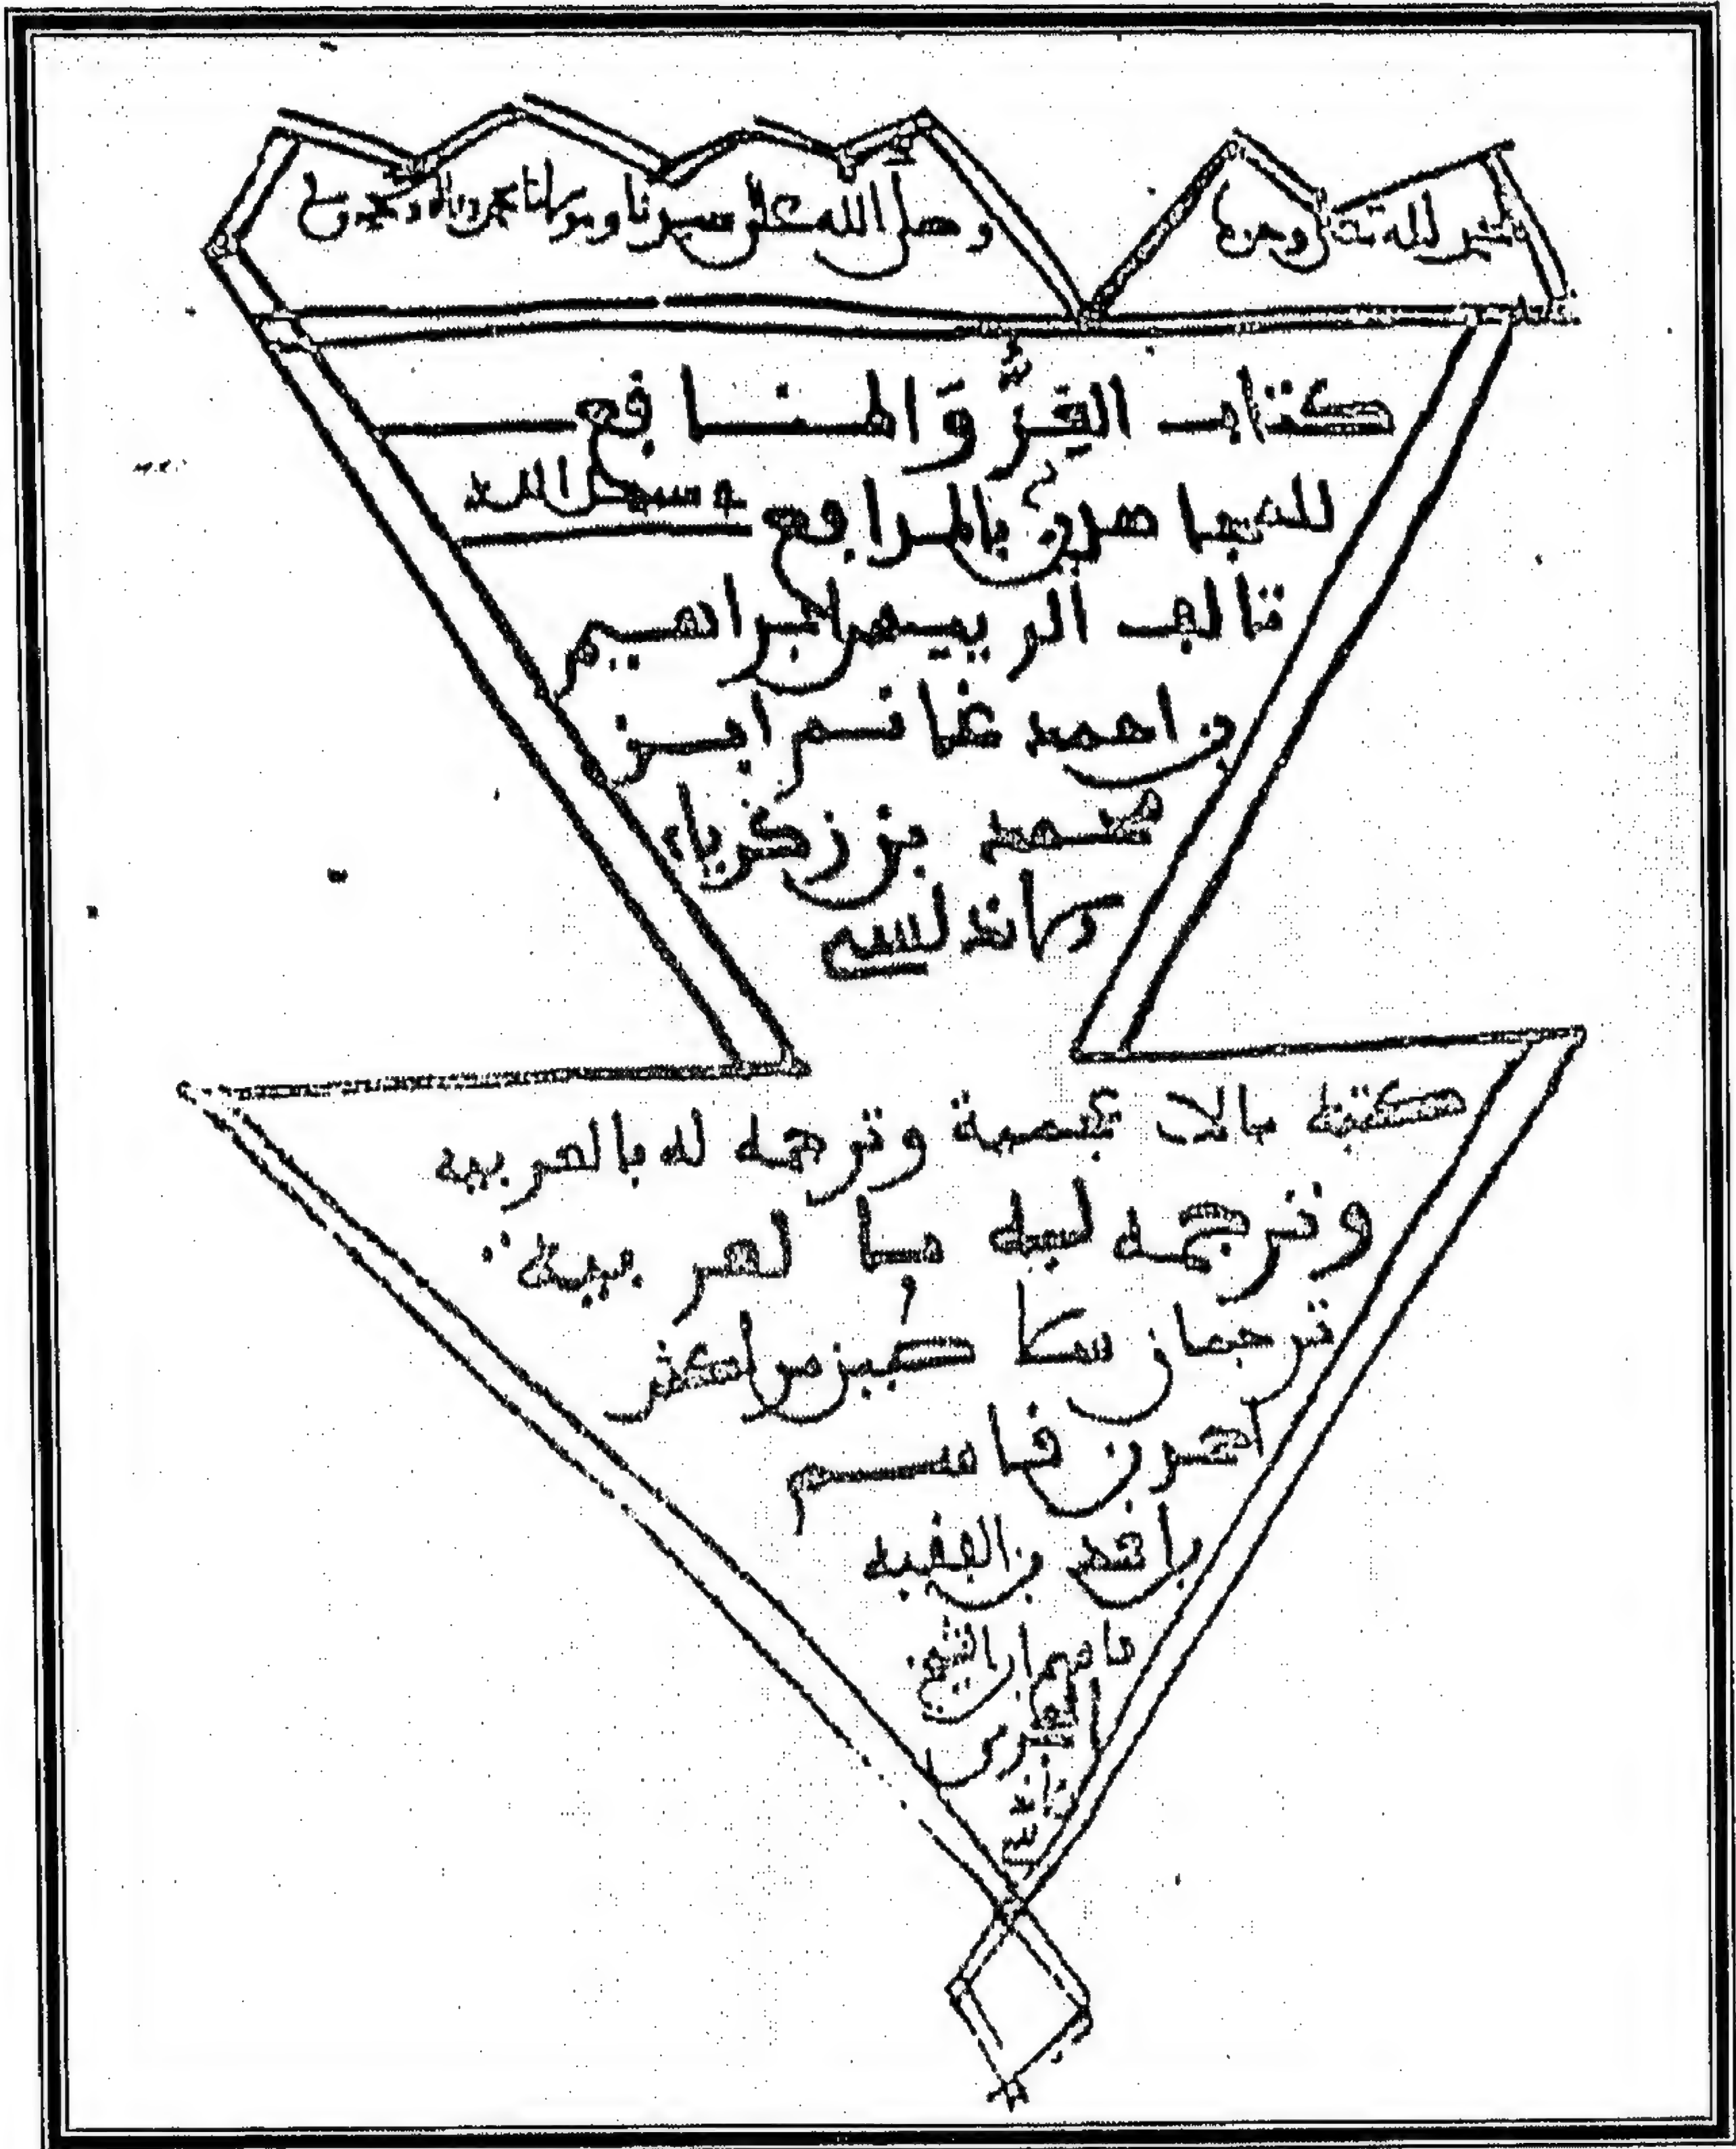 الحمد لله تعالى وحده
وصلى الله على سيدنا ومولانا محمد وءاله وصحبه وسلم
كتاب العز والمنافع
للمجاهدين بالمدافع في سبيل الله
تاليف الرييس ابراهيم
بن احمد غانم ابن
محمد بن زكرياء
الاندلسي
كتبه بالاعجمية وترجمه له بالعربيه
وترجمه ليه بالعربية
ترجمان سلاطين مراكش
احمد بن قاسم
بن احمد بن الفقيه
قاسم ابن الشيخ